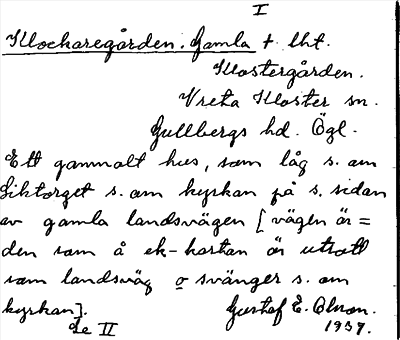 I
Klockaregården. Gamla + lht.
Klostergården.
Vreta Kloster sn.
Gullbergs hd. Ögl.
Ett gammalt hus, som låg s. om
Liktorget s. om kyrkan på s. sidan
av gamla landsvägen [vägen är =
den som å ek-kartan är utsatt
som landsväg o svänger s. om
kyrkan].
Gustaf E. Olson.
Se II
1937.